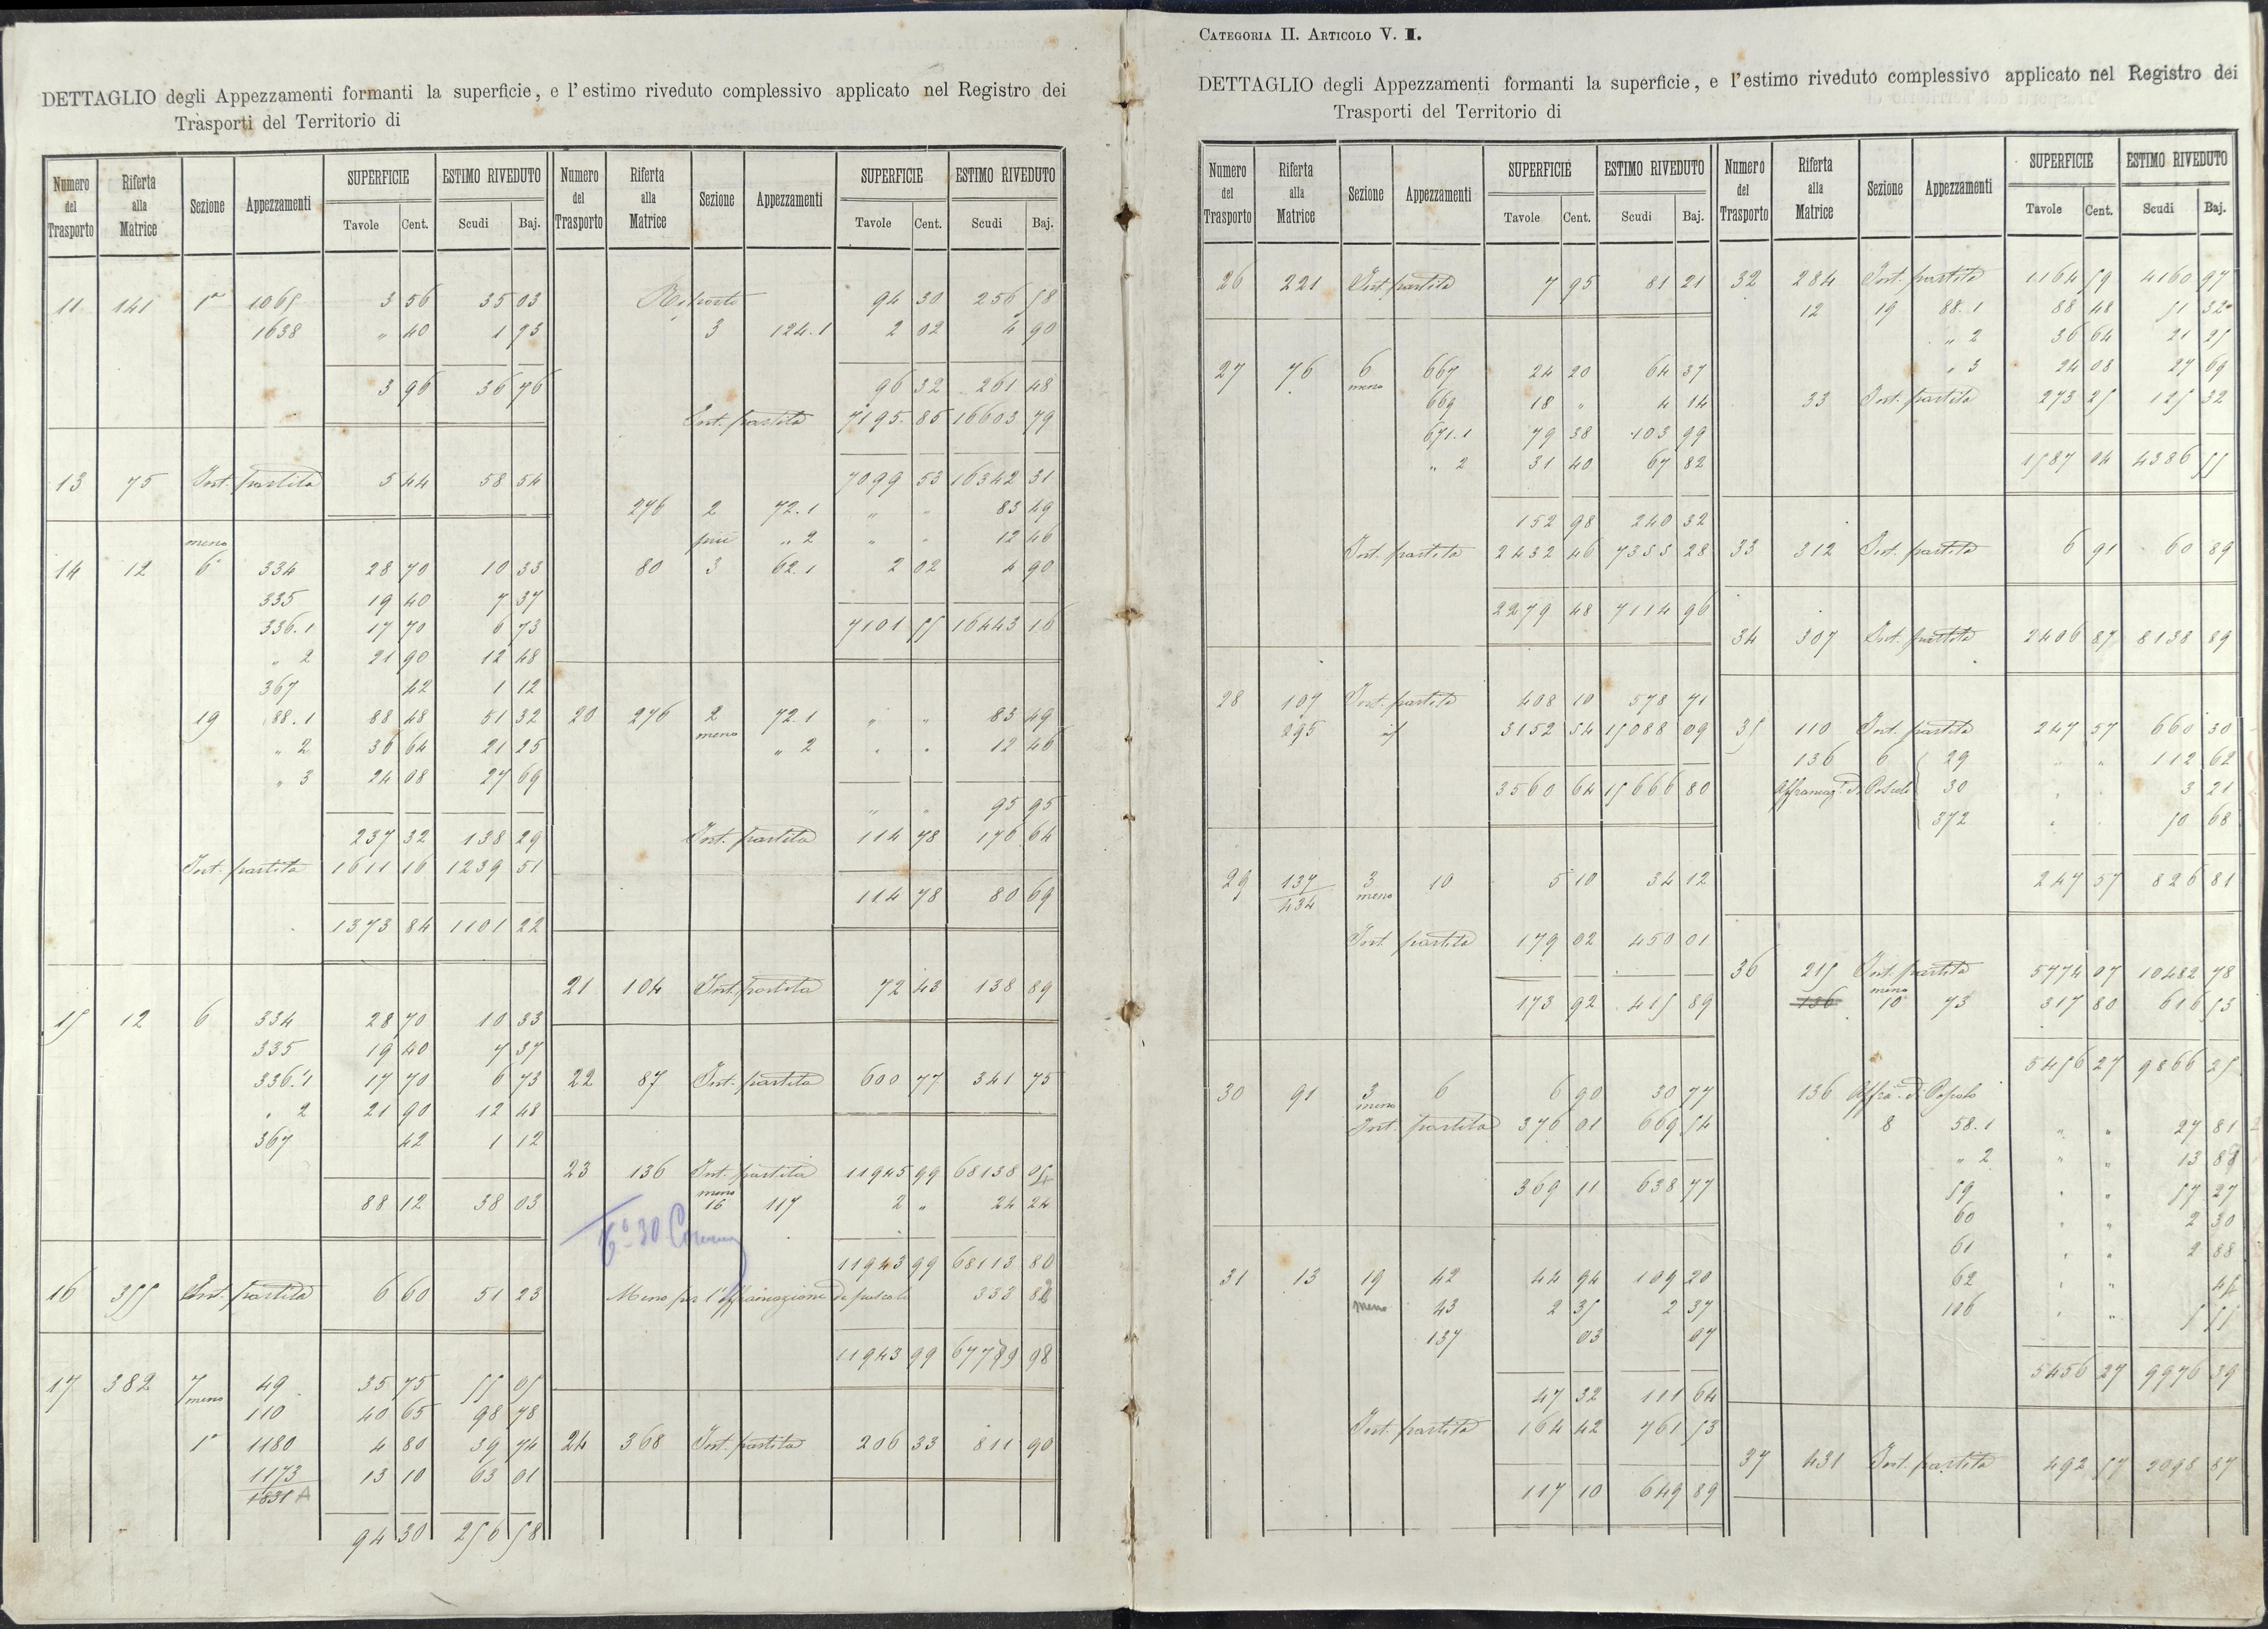 DETTAGLIO degli Appezzamenti formanti la superficie, e l'estimo riveduto complessivo applicato nel Registro dei
Trasporti del Territorio di
Numero del Trasporto Riferta alla Matrice Sezione Appezzamenti SUPERFICIE Tavole Cent. ESTIMO RIVEDUTO Scudi Baj.
11 141 1a 1065 3 56 35 03
1638 „ 40 1 73
3 96 36 76
13 75 Int. partita 5 44 58 54
meno
14 12 6a 334 28 70 10 33
335 19 40 7 37
336.1 17 70 6 73
„ 2 21 90 12 48
367 42 1 12
19 88.1 88 48 51 32
„ 2 36 64 21 25
„ 3 24 08 27 69
237 32 138 29
Int. partita 1611 16 1239 51
1373 84 1101 22
15 12 6 334 28 70 10 33
335 19 40 7 37
336.1 17 70 6 73
„ 2 21 90 12 48
367 42 1 12
88 12 38 03
16 355 Int. partita 6 60 51 23
17 382 7 meno 49 35 75 55 05
110 40 65 98 78
1a 1180 4 80 39 74
1173 13 10 63 01
1831 A
94 30 256 58
Numero del Trasporto Riferta alla Matrice Sezione Appezzamenti SUPERFICIE Tavole Cent. ESTIMO RIVEDUTO Scudi Baj.
Riporto 94 30 256 58
3 124.1 2 02 4 90
96 32 261 48
Int. partita 7195 85 16603 79
7099 53 16342 31
276 2 72.1 „ „ 83 49
più „ 2 „ „ 12 46
80 3 62.1 2 02 4 90
7101 55 16443 16
20 276 2 72.1 „ „ 83 49
meno „ 2 „ „ 12 46
„ „ 95 95
Int. partita 114 78 176 64
114 78 80 69
21 104 Int. partita 72 43 138 89
22 87 Int. partita 600 77 341 75
23 136 Int. partita 11945 99 68138 04
meno
16 117 2 „ 24 24
11943 99 68113 80
Meno per l'affrancazione di pascolo 333 82
11943 99 67779 98
24 368 Int. partita 206 33 811 90
CATEGORIA II. ARTICOLO V. I.
DETTAGLIO degli Appezzamenti formanti la superficie, e l'estimo riveduto complessivo applicato nel Registro dei
Trasporti del Territorio di
Numero del Trasporto Riferta alla Matrice Sezione Appezzamenti SUPERFICIE Tavole Cent. ESTIMO RIVEDUTO Scudi Baj.
26 221 Int. partita 7 95 81 21
27 76 6 667 24 20 64 37
meno
669 18 „ 4 14
671.1 79 38 103 99
„ 2 31 40 67 82
152 98 240 32
Int. partita 2432 46 7355 28
2279 48 7114 96
28 107 Int. partita 408 10 578 71
295 id 3152 54 15088 09
3560 64 15666 80
29 137 3 10 5 10 34 12
434 meno
Int. partita 179 02 450 01
173 92 415 89
30 91 3 6 6 90 30 77
meno
Int. partita 376 01 669 54
369 11 638 77
31 13 19 42 44 94 109 20
meno 43 2 35 2 37
137 03 07
47 32 111 64
Int. partita 164 42 761 53
117 10 649 89
Numero del Trasporto Riferta alla Matrice Sezione Appezzamenti SUPERFICIE Tavole Cent. ESTIMO RIVEDUTO Scudi Baj.
32 284 Int. partita 1164 59 4160 97
12 19 88.1 88 48 51 32
„ 2 36 64 21 25
„ 3 24 08 27 69
33 Int. partita 273 25 125 32
1587 04 4386 55
33 312 Int. partita 6 91 60 89
34 307 Int. partita 2406 87 8138 89
35 110 Int. partita 247 57 660 30
136 6 29 „ „ 112 62
Affrancaz. di Pascolo 30 „ „ 3 21
372 „ „ 50 68
247 57 826 81
36 215 Int. partita 5774 07 10482 78
meno
136 10 73 317 80 616 53
5456 27 9866 25
136 Affra. di Pascolo
8 58.1 „ „ 27 81
„ 2 „ „ 13 88
59 „ „ 57 27
60 „ „ 2 30
61 „ „ 2 88
62 „ „ 45
106 „ „ 5 55
5456 27 9976 39
37 431 Int. partita 492 57 2098 87